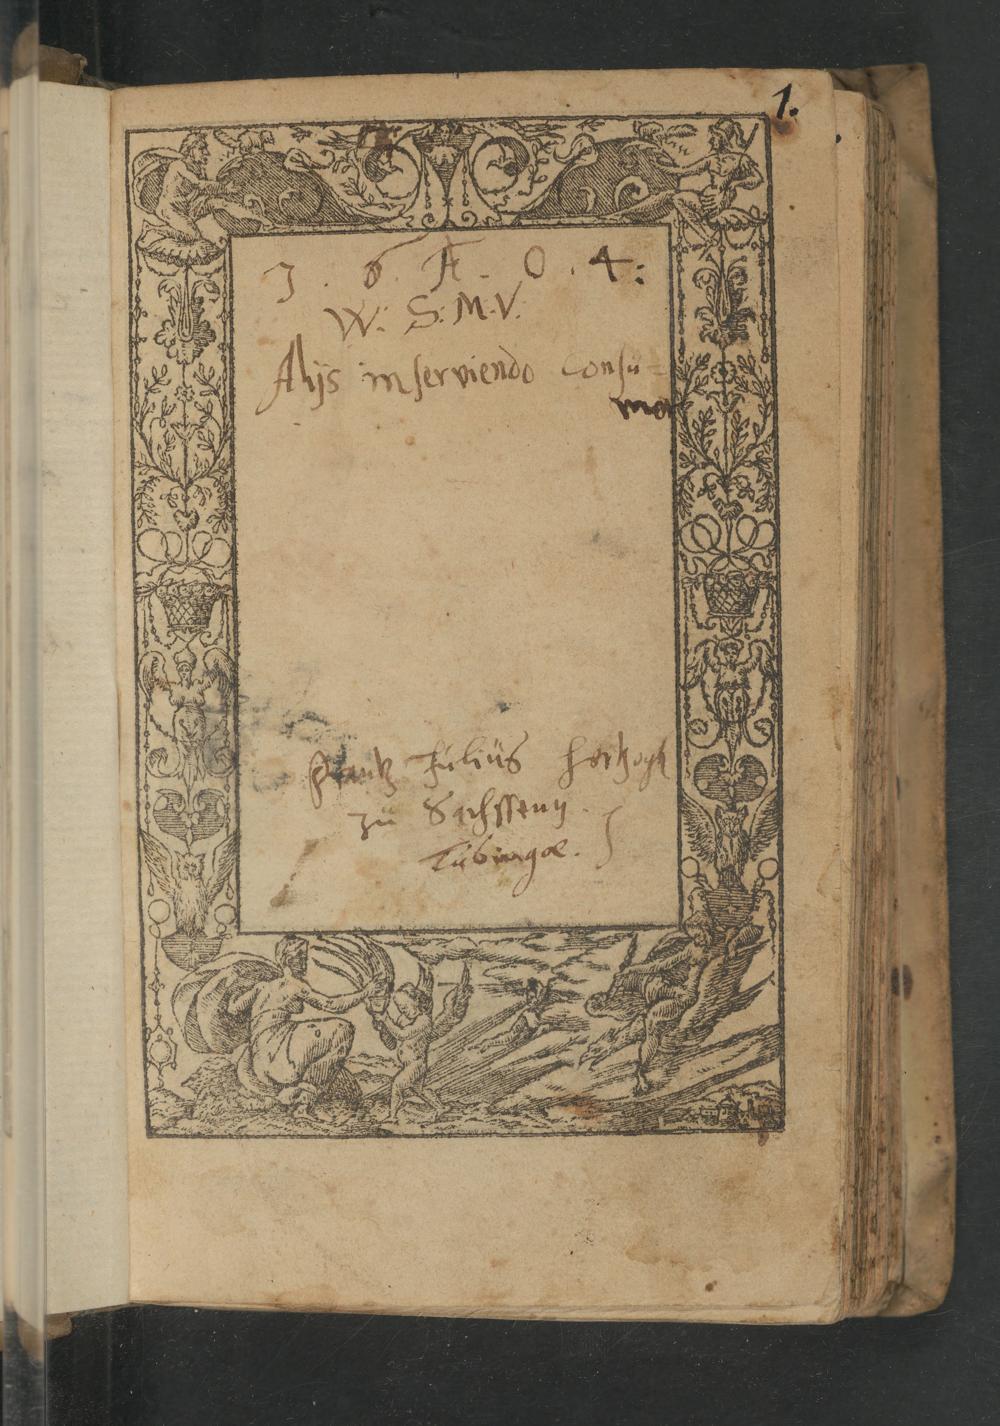 1.
1 . 6 . A . 0 . 4 :
W. S. M. V.
Alijs inserviendo consu=
mor
Frantz Julius Hertzogk
zu Sachssenn.
Tübingæ.